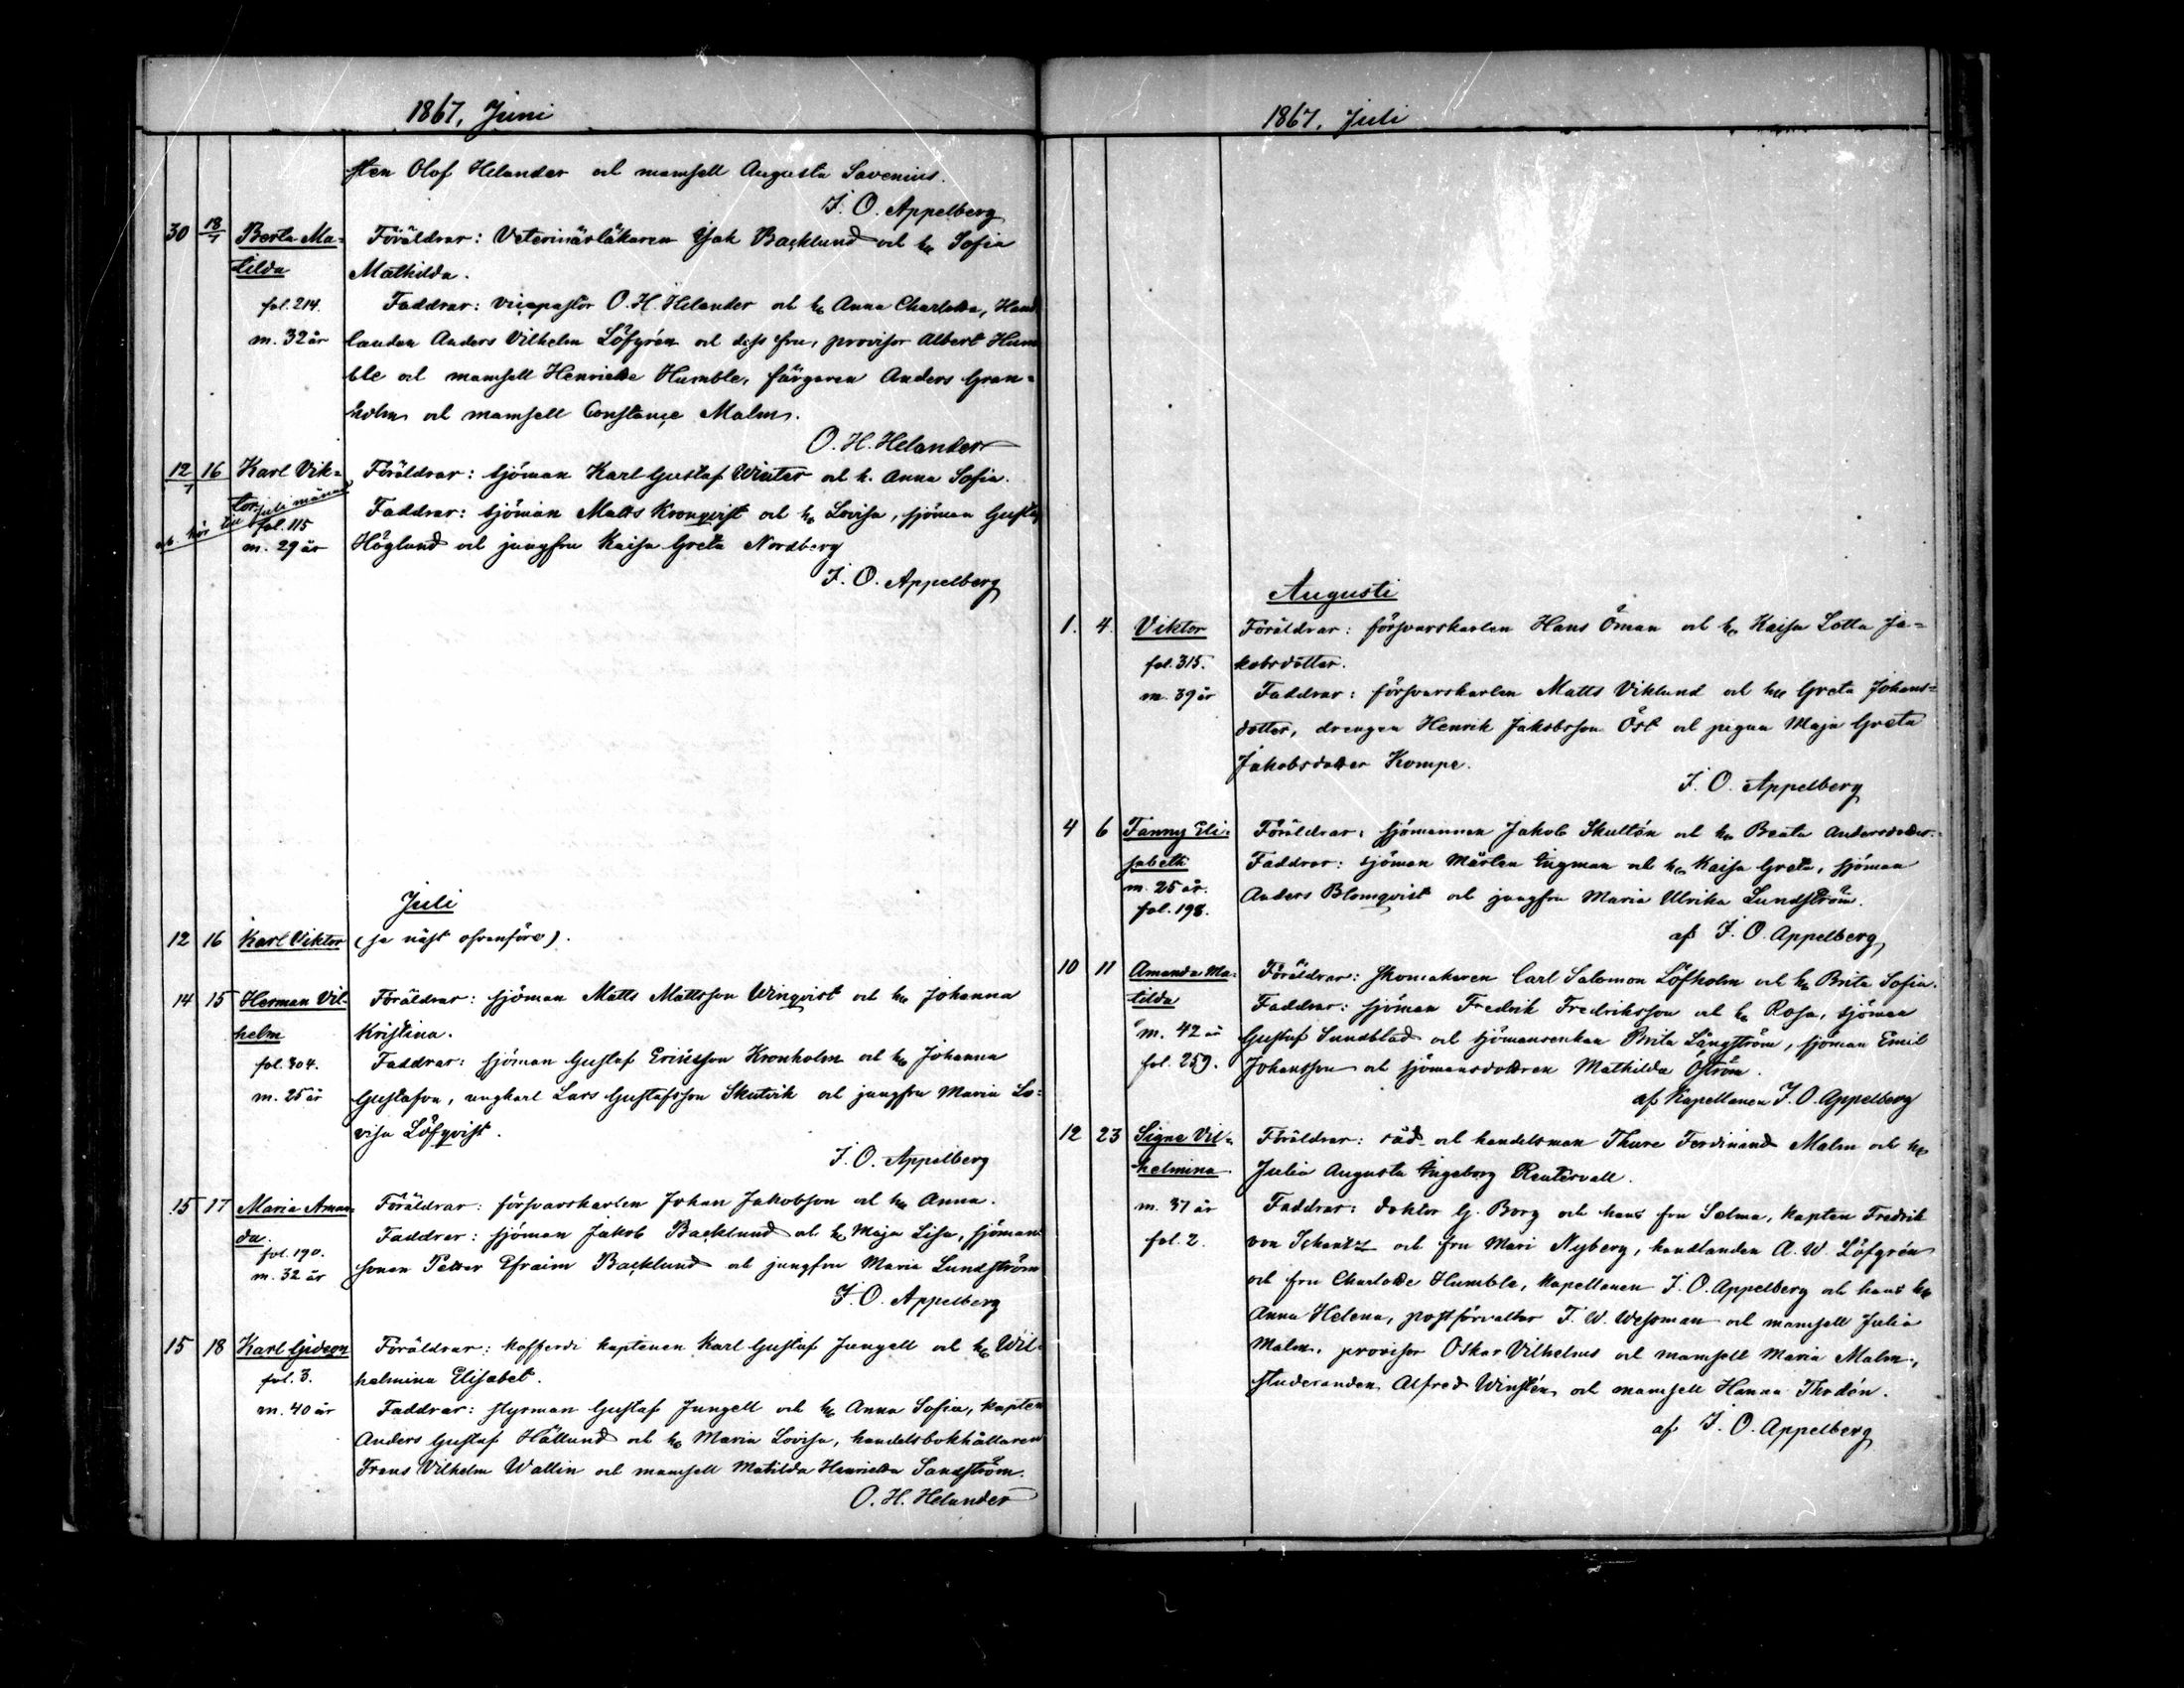 1867, Juni
sten Olof Helander och mamsell Augusta Savenius.
J. O. Appelberg
30 18/7 Berta Ma- Föräldrar: Veterinärläkaren Isak Backlund och h. Sofia
tilda Mathilda.
fol. 214. Faddrar: vicepastor O. H. Helander och h. Anna Charlotta, Hand
m. 32 år landen Anders Vilhelm Löfgrén och dess fru, provisor Albert Hum
ble och mamsell Henriette Humble, färgaren Anders Gran-
holm och mamsell Constance Malm.
O. H. Helander
12/7 16 Karl Vik- Föräldrar: sjöman Karl Gustaf Winter och h. Anna Sofia.
tor juli månad Faddrar: sjöman Matts Kronqvist och h. Lovisa, sjöman Gustaf
obs. hör till fol. 115
m. 29 år Höglund och jungfru Kaisa Greta Nordberg
J. O. Appelberg
Juli
12 16 Karl Viktor (se näst ofvanföre).
14 15 Herman Vil- Föräldrar: sjöman Matts Mattsson Winqvist och h. Johanna
helm Kristina.
fol. 304. Faddrar: sjöman Gustaf Ericsson Kronholm och h. Johanna
m. 25 år Gustafva, ungkarl Lars Gustafsson Skutvik och jungfru Maria Lo-
visa Löfqvist.
J. O. Appelberg
15 17 Maria Aman- Föräldrar: försvarskarlen Johan Jakobson och h. Anna.
da. Faddrar: sjöman Jakob Backlund och h. Maja Lisa, sjömans
fol. 190.
m. 32 år sonen Petter Efraim Backlund och jungfru Maria Lundström
J. O. Appelberg
15 18 Karl Gideon Föräldrar: Kofferdi kaptenen Karl Gustaf Jungell och h. Wil-
fol. 3. helmina Elisabet.
m. 40 år Faddrar: styrman Gustaf Jungell och h. Anna Sofia, kapten
Anders Gustaf Hällund och h. Maria Lovisa, handelsbokhållaren
Frans Vilhelm Wallin och mamsell Matilda Henrietta Sandström.
O. H. Helander
1867, Juli
Augusti
1. 4. Viktor Föräldrar: försvarskarlen Hans Öman och h. Kaisa Lotta Ja-
fol. 315. kobsdotter.
m. 39 år Faddrar: försvarskarlen Matts Viklund och h. Greta Johans-
dotter, drengen Henrik Jakobsson Öst och pigan Maja Greta
Jakobsdotter Kompe.
J. O. Appelberg
4 6 Fanny Eli- Föräldrar: sjömannen Jakob Skultén och h. Beata Andersdotter.
sabeth Faddrar: sjöman Mårten Engman och h. Kaisa Greta, sjöman
m. 25 år.
fol. 198. Anders Blomqvist och jungfru Maria Ulrika Lundström.
af J. O. Appelberg
10 11 Amanda Ma- Föräldrar: skomakaren Carl Salomon Löfholm och h. Brita Sofia.
tilda Faddrar: sjöman Fredrik Fredriksson och h. Rosa, sjöman
m. 42 år Gustaf Sundblad och sjömansenkan Brita Långström, sjöman Emil
fol. 259. Johansson och sjömansdottren Mathilda Öström.
af Kapellanen J. O. Appelberg
12 23 Signe Vil- Föräldrar: råd- och handelsman Thure Ferdinand Malm och h.
helmina Julia Augusta Ingeborg Reutervall.
m. 37 år Faddrar: doktor G. Borg och hans fru Selma, kapten Fredrik
fol. 2. von Schantz och fru Mari Nyberg, handlanden A. W. Löfgrén
och fru Charlotte Humble, kapellanen J. O. Appelberg och hans h.
Anna Helena, postförvaltar F. W. Wessman och mamsell Julia
Malm, provisor Oskar Vilhelms och mamsell Maria Malm,
studeranden Alfred Winstén och mamsell Hanna Thodén.
af J. O. Appelberg